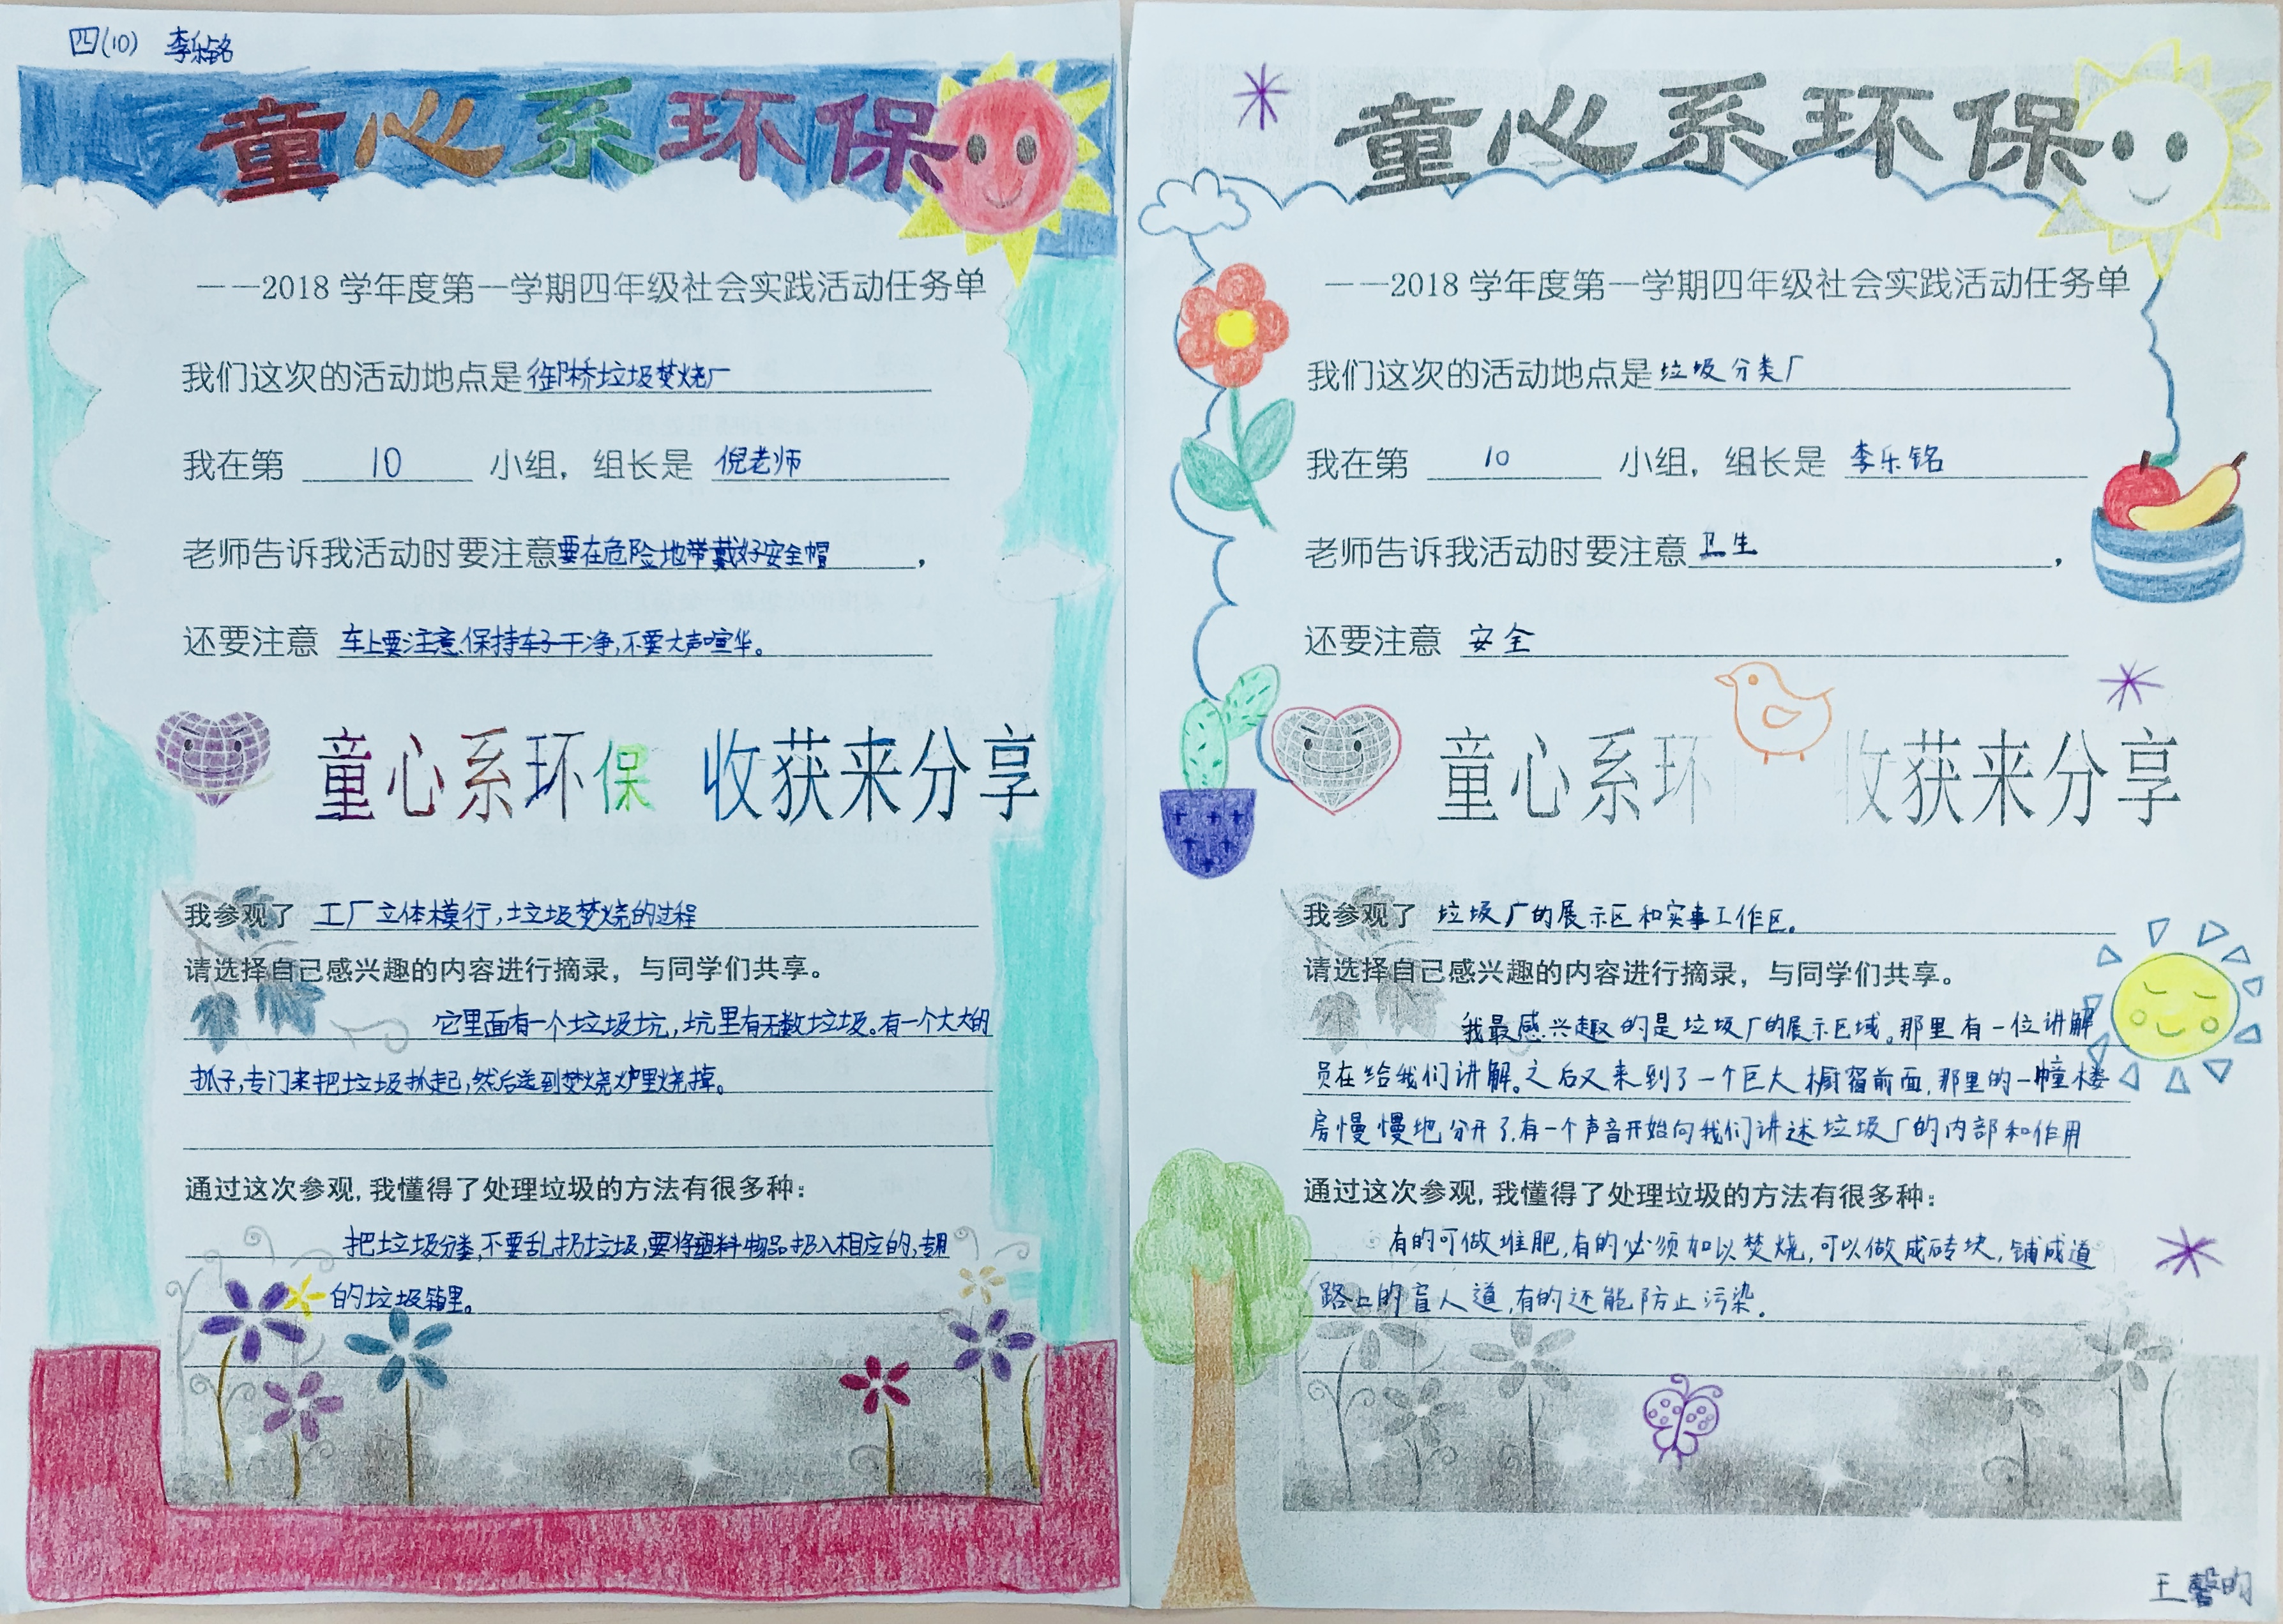 四(10) 李乐铭
童心系环保
——2018学年度第一学期四年级社会实践活动任务单
我们这次的活动地点是御桥垃圾焚烧厂
我在第 10 小组，组长是 倪老师
老师告诉我活动时要注意要在危险地带戴好安全帽，
还要注意 车上要注意保持车子干净,不要大声喧华。
童心系环保 收获来分享
我参观了 工厂立体模行,垃圾焚烧的过程
请选择自己感兴趣的内容进行摘录，与同学们共享。
它里面有一个垃圾坑,坑里有无数垃圾。有一个大大的
抓子,专门来把垃圾抓起,然后送到焚烧炉里烧掉。
通过这次参观,我懂得了处理垃圾的方法有很多种：
把垃圾分类,不要乱扔垃圾,要将塑料物品扔入相应的,专用
的垃圾箱里。
童心系环保
——2018学年度第一学期四年级社会实践活动任务单
我们这次的活动地点是垃圾分类厂
我在第 10 小组，组长是 李乐铭
老师告诉我活动时要注意卫生，
还要注意 安全
童心系环 收获来分享
我参观了 垃圾厂的展示区和实事工作区。
请选择自己感兴趣的内容进行摘录，与同学们共享。
我最感兴趣的是垃圾厂的展示区域。那里有一位讲解
员在给我们讲解。之后又来到了一个巨大橱窗前面,那里的一幢楼
房慢慢地分开了,有一个声音开始向我们讲述垃圾厂的内部和作用
通过这次参观,我懂得了处理垃圾的方法有很多种：
有的可做堆肥,有的必须加以焚烧,可以做成砖块,铺成道
路上的盲人道,有的还能防止污染。
王馨昀